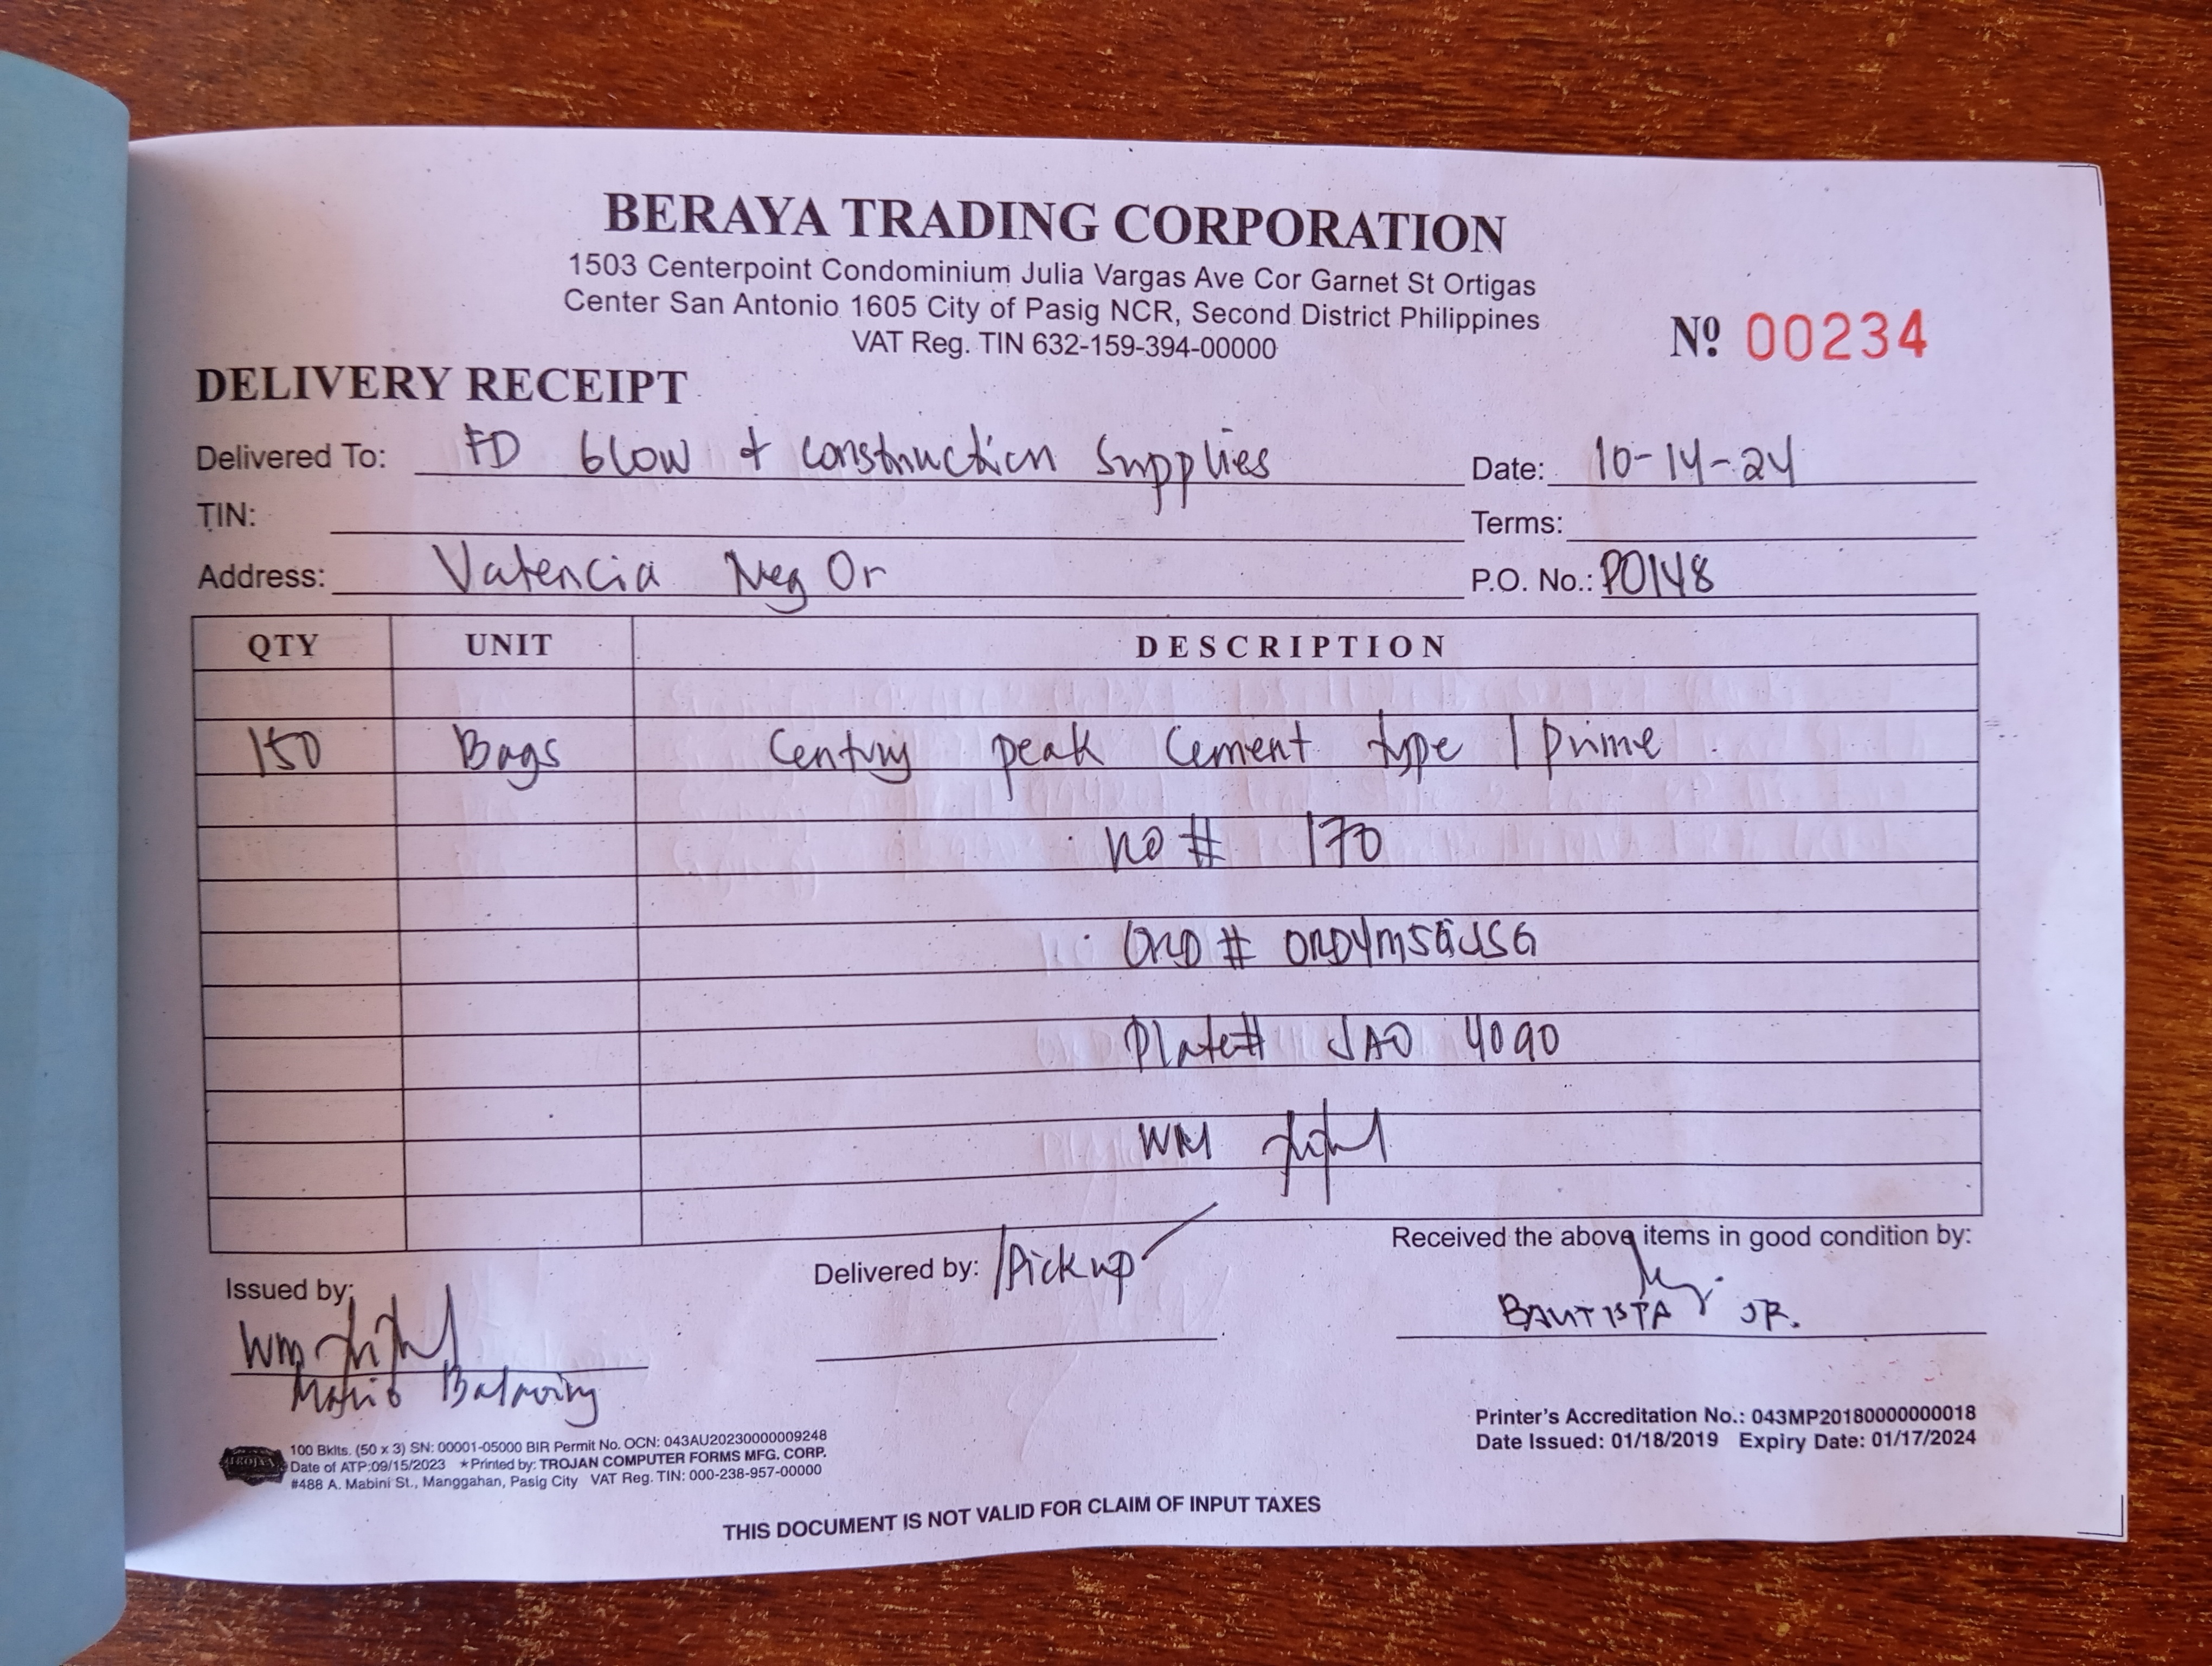 BERAYA TRADING CORPORATION
1503 Centerpoint Condominium Julia Vargas Ave Cor Garnet St Ortigas
Center San Antonio 1605 City of Pasig NCR, Second District Philippines
VAT Reg. TIN 632-159-394-00000
Nº 00234
DELIVERY RECEIPT
Delivered To: FD Glow & Construction Supplies
Date: 10-14-24
TIN:
Terms:
Address: Valencia Neg Or
P.O. No.: PO148
QTY UNIT DESCRIPTION
150 Bags Century peak Cement type 1 prime
# 170
# 
Plate# JAO 4090
WM
Issued by:
Delivered by: /Pickup
Received the above items in good condition by:
WM
BAUTISTA JR.
Mario
100 Bklts. (50 x 3) SN: 00001-05000 BIR Permit No. OCN: 043AU20230000009248
Date of ATP:09/15/2023 *Printed by: TROJAN COMPUTER FORMS MFG. CORP.
#488 A. Mabini St., Manggahan, Pasig City VAT Reg. TIN: 000-238-957-00000
TROJAN
Printer's Accreditation No.: 043MP20180000000018
Date Issued: 01/18/2019 Expiry Date: 01/17/2024
THIS DOCUMENT IS NOT VALID FOR CLAIM OF INPUT TAXES